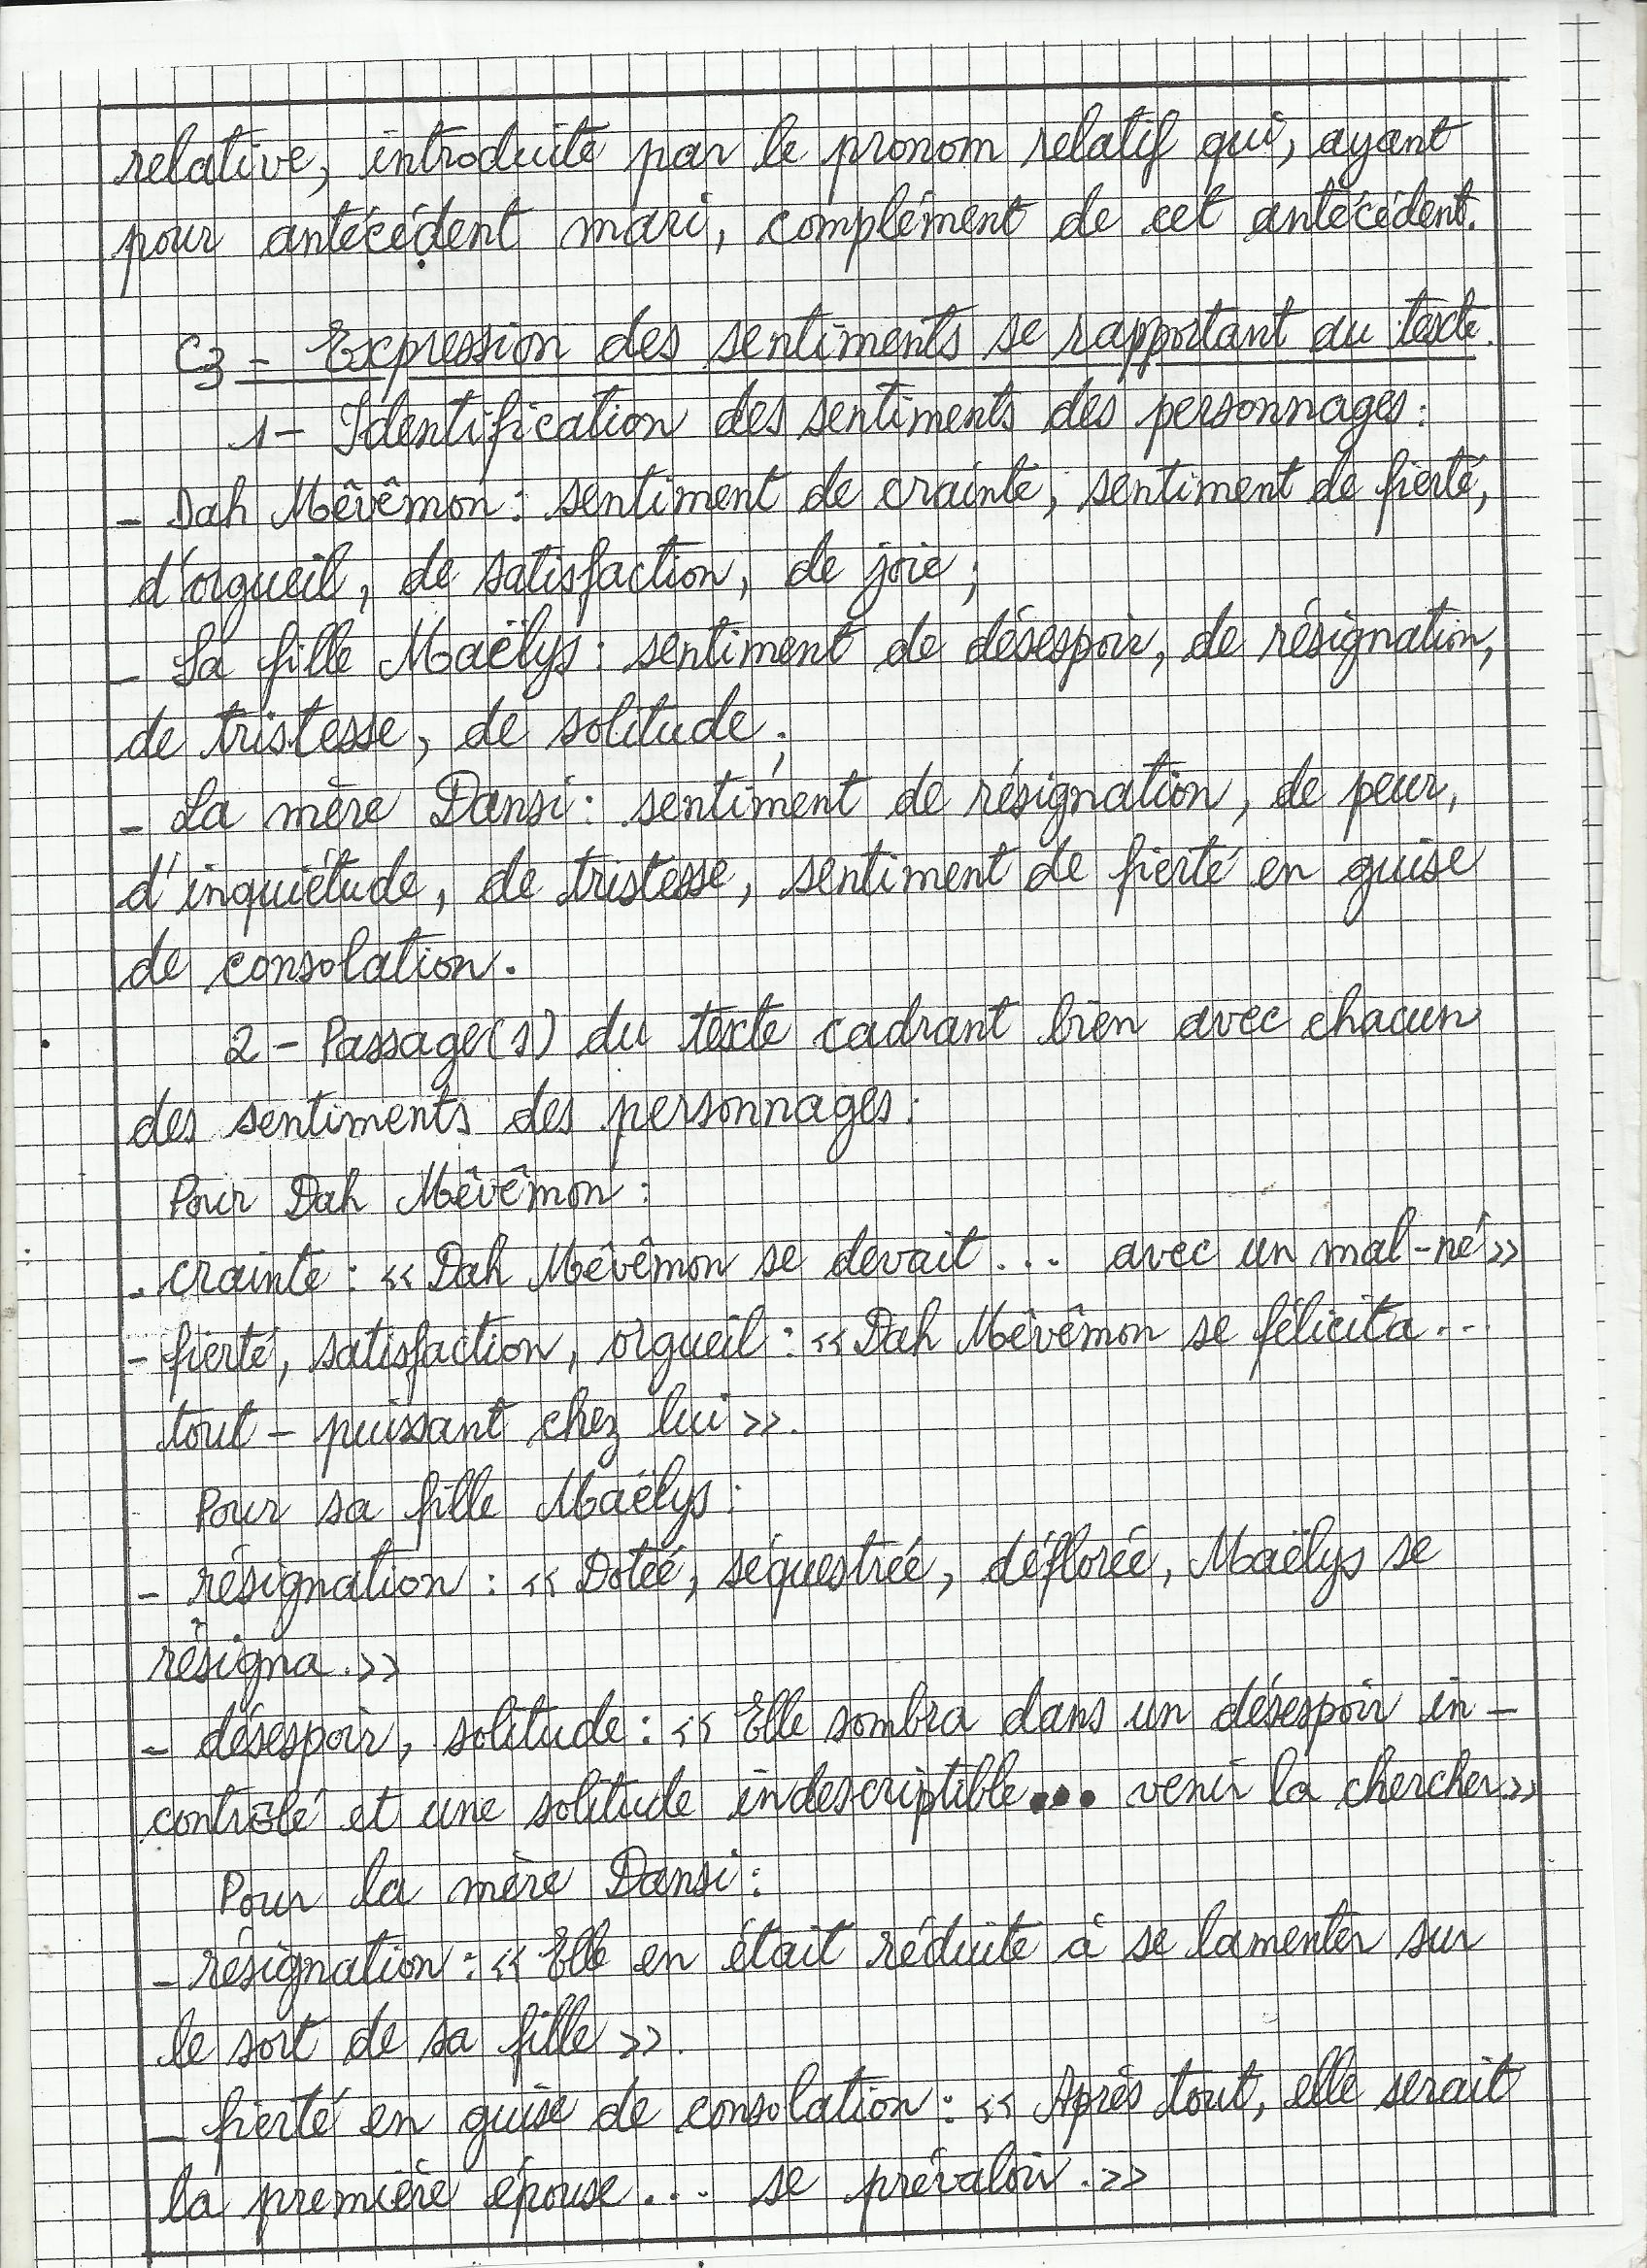 relative, introduite par le pronom relatif qui, ayant
pour antécédent mari, complément de cet antécédent.
C3 - Expression des sentiments se rapportant au texte.
1- Identification des sentiments des personnages :
- Dah Mêvêmon : sentiment de crainte, sentiment de fierté,
d'orgueil, de satisfaction, de joie ;
- Sa fille Maëlys : sentiment de désespoir, de résignation,
de tristesse, de solitude ;
- La mère Dansi : sentiment de résignation, de peur,
d'inquiétude, de tristesse, sentiment de fierté en guise
de consolation.
2 - Passage(s) du texte cadrant bien avec chacun
des sentiments des personnages :
Pour Dah Mêvêmon :
- crainte : << Dah Mêvêmon se devait ... avec un mal-né >>
- fierté, satisfaction, orgueil : << Dah Mêvêmon se félicita ...
tout - puissant chez lui >>.
Pour sa fille Maëlys :
- résignation : << Dotée, séquestrée, déflorée, Maëlys se
résigna. >>
- désespoir, solitude : << Elle sombra dans un désespoir in-
contrôlé et une solitude indescriptible... venir la chercher >>
Pour la mère Dansi :
- résignation : << Elle en était réduite à se lamenter sur
le sort de sa fille >>.
- fierté en guise de consolation : << Après tout, elle serait
la première épouse ... se prévaloir. >>